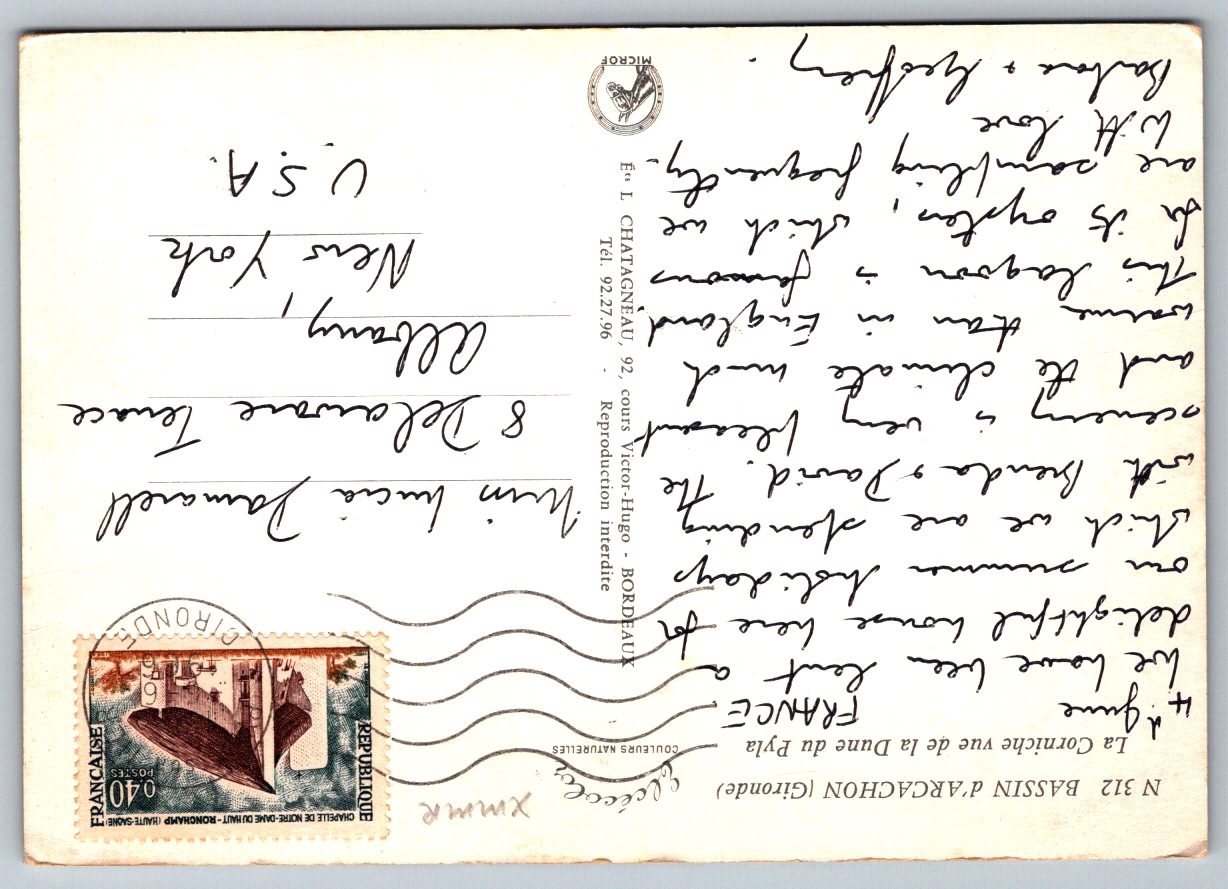 N 312 BASSIN d'ARCACHON (Gironde)
La Corniche vue de la Dune du Pyla
COULEURS NATURELLES
4th June FRANCE
We have been lent a
delightful house here for
our summer holidays
which we are spending
with Brenda & David. The
scenery is very pleasant
and the climate much
warmer than in England
This lagoon is famous
for its oysters, which we
are sampling frequently.
With love
Barbara & Geoffrey.
Éts L CHATAGNEAU, 92, cours Victor-Hugo - BORDEAUX
Tél. 92.27.96 - Reproduction interdite
MICROF
CHAPELLE DE NOTRE-DAME DU HAUT - RONCHAMP (HAUTE-SAONE)
0,40
POSTES
REPUBLIQUE
FRANÇAISE
GIRONDE
Miss Lucia Damarell
8 Delaware Terrace
Albany,
New York
U.S.A.